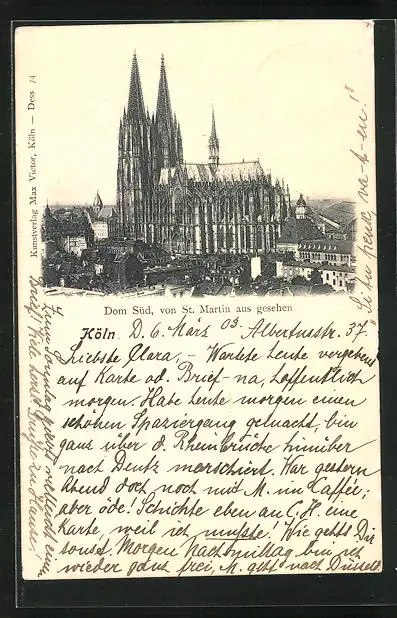 Kunstverlag Max Victor, Köln — Dess 74
"Si tu peux, va-t-en!"
Dom Süd, von St. Martin aus gesehen
Köln D. 6. März 03. Albertusstr. 37.
Liebste Clara, - Wartete heute vergebens
auf Karte od. Brief - na, hoffentlich
morgen. Habe heute morgen einen
schönen Spaziergang gemacht, bin
ganz über d. Rheinbrücke hinüber
nach Deutz marschiert. War gestern
Abend doch noch mit M. im Caffée;
aber öde! Schickte eben an C. H. eine
Karte, weil ich musste! Wie gehts Dir
sonst. Morgen Nachmittag bin ich
wieder ganz frei, M. geht nach Düsseld.
Zum Sonntag vielleicht einen
Brief! Viele Grüße zu Hause!